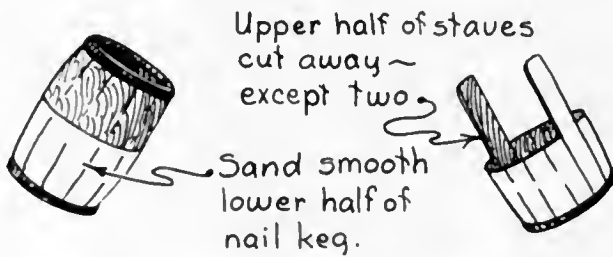 Upper half of staves
cut away ~
except two.
Sand smooth
lower half of
nail keg.